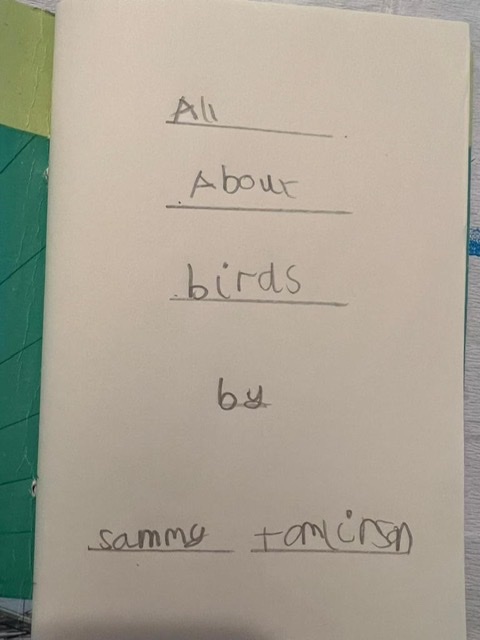 All
About
birds
by
sammy tomlinson